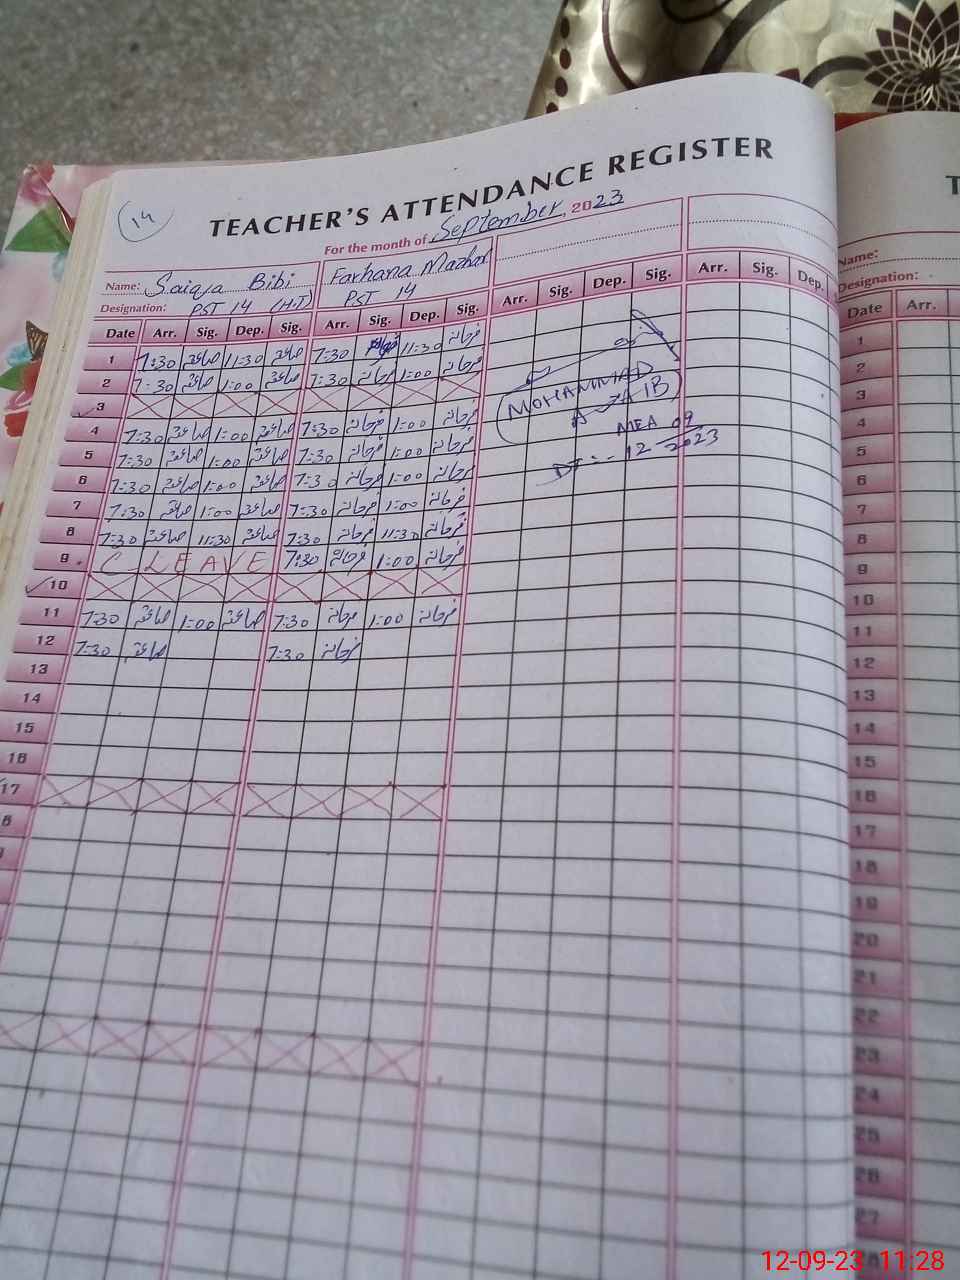 14
TEACHER'S ATTENDANCE REGISTER
For the month of September, 2023
Name: Saiqa Bibi Farhana Mazhar
Designation: PST 14 (H.T) PST 14
Date Arr. Sig. Dep. Sig. Arr. Sig. Dep. Sig. Arr. Sig. Dep. Sig. Arr. Sig. Dep.
1 7:30 صائقہ 11:30 صائقہ 7:30 11:30 فرحانہ
2 7:30 صائقہ 1:00 صائقہ 7:30 فرحانہ 1:00 فرحانہ
3
4 7:30 صائقہ 1:00 صائقہ 7:30 فرحانہ 1:00 فرحانہ
5 7:30 صائقہ 1:00 صائقہ 7:30 فرحانہ 1:00 فرحانہ
6 7:30 صائقہ 1:00 صائقہ 7:30 فرحانہ 1:00 فرحانہ
7 7:30 صائقہ 1:00 صائقہ 7:30 فرحانہ 1:00 فرحانہ
8 7:30 صائقہ 11:30 صائقہ 7:30 فرحانہ 11:30 فرحانہ
9 C-LEAVE 7:30 فرحانہ 1:00 فرحانہ
10
11 7:30 صائقہ 1:00 صائقہ 7:30 فرحانہ 1:00 فرحانہ
12 7:30 صائقہ 7:30 فرحانہ
13
14
15
16
17
8
MOHAMMAD
MEA 09
DT:- 12 2023
Name:
Designation:
Date Arr.
1
2
3
4
5
6
7
8
9
10
11
12
13
14
15
16
17
18
19
20
21
22
23
24
25
26
27
12-09-23 11:28